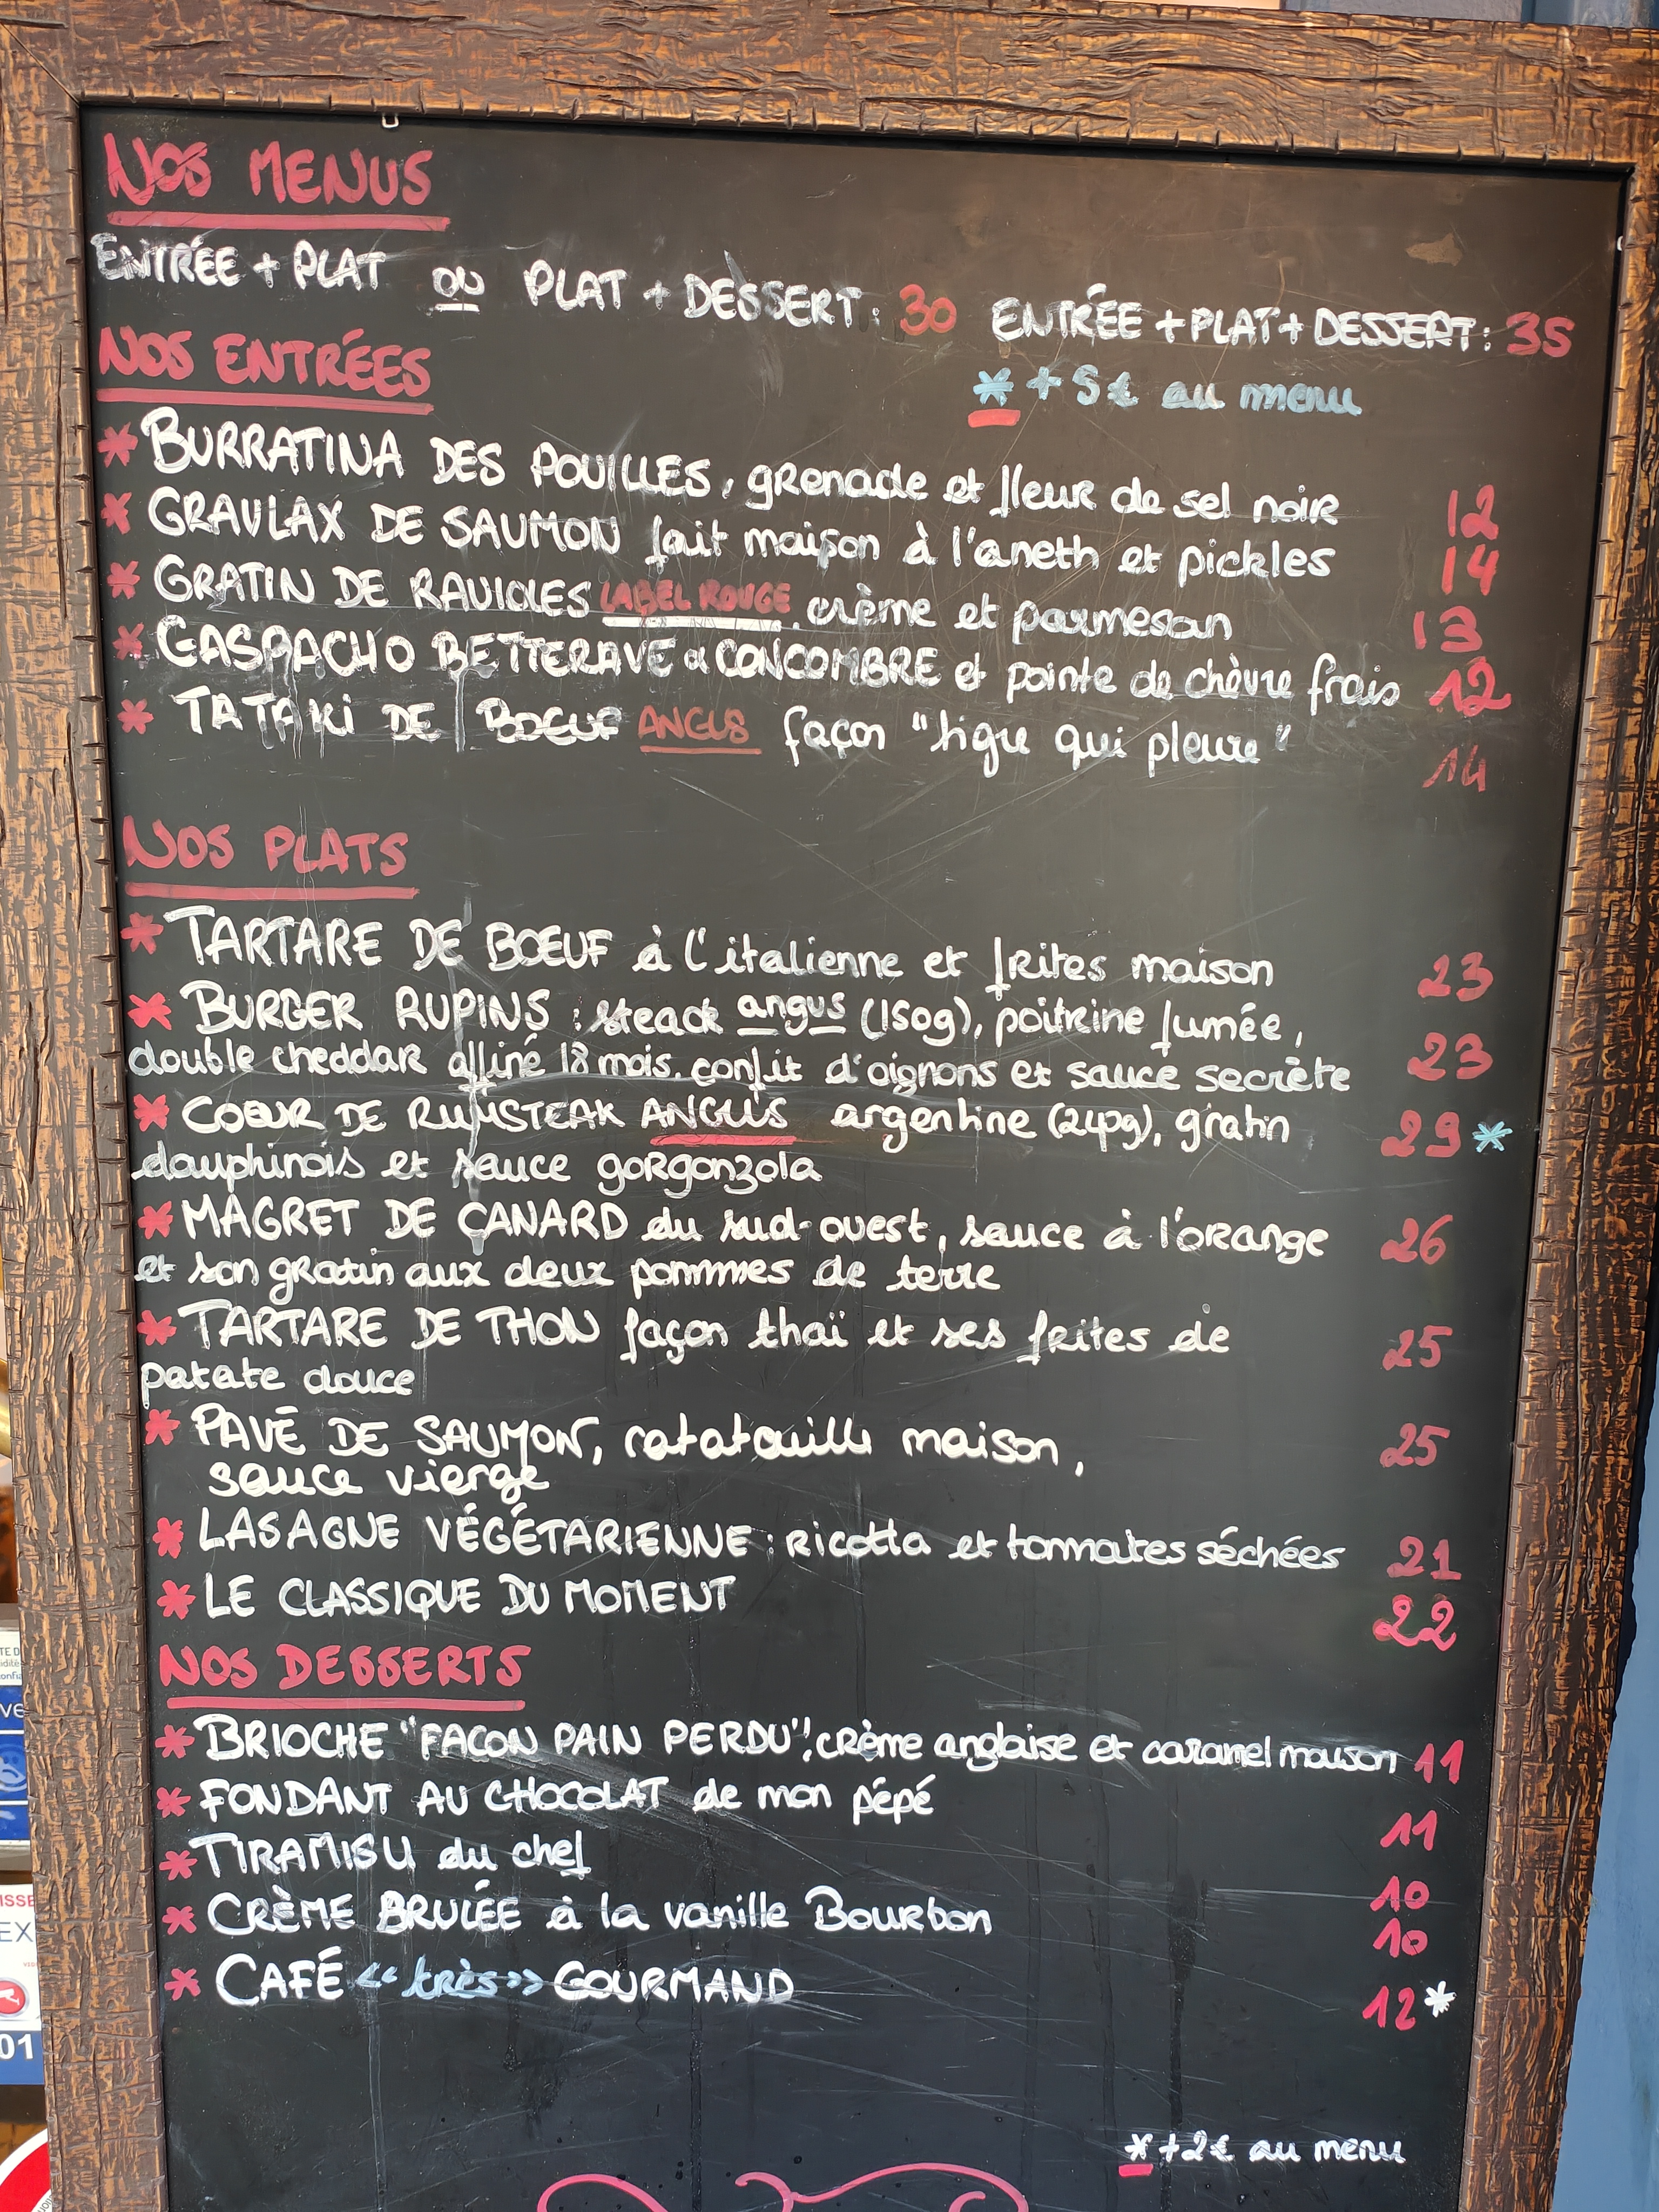 NOS MENUS
ENTRÉE + PLAT OU PLAT + DESSERT : 30 ENTRÉE + PLAT + DESSERT : 35
* + 5€ au menu
NOS ENTRÉES
* BURRATINA DES POUILLES, grenade et fleur de sel noir 12
* GRAVLAX DE SAUMON fait maison à l'aneth et pickles 14
* GRATIN DE RAVIOLES LABEL ROUGE, crème et parmesan 13
* GASPACHO BETTERAVE & CONCOMBRE et pointe de chèvre frais 12
* TATAKI DE BOEUF ANGUS façon "tigre qui pleure" 14
NOS PLATS
* TARTARE DE BOEUF à l'italienne et frites maison 23
* BURGER RUPINS : steack angus (150g), poitrine fumée,
double cheddar affiné 18 mois, confit d'oignons et sauce secrète 23
* COEUR DE RUMSTEAK ANGUS argentine (240g), gratin 29 *
dauphinois et sauce gorgonzola
* MAGRET DE CANARD du sud-ouest, sauce à l'orange 26
et son gratin aux deux pommmes de terre
* TARTARE DE THON façon thaï et ses frites de 25
patate douce
* PAVÉ DE SAUMON, ratatouille maison, 25
sauce vierge
* LASAGNE VÉGÉTARIENNE : ricotta et tommates séchées 21
* LE CLASSIQUE DU MOMENT 22
NOS DESSERTS
* BRIOCHE "FACON PAIN PERDU", crème anglaise et caramel maison 11
* FONDANT AU CHOCOLAT de mon pépé 11
* TIRAMISU du chef 10
* CRÈME BRULÉE à la vanille Bourbon 10
* CAFÉ << très >> GOURMAND 12 *
* +2€ au menu
EX
01